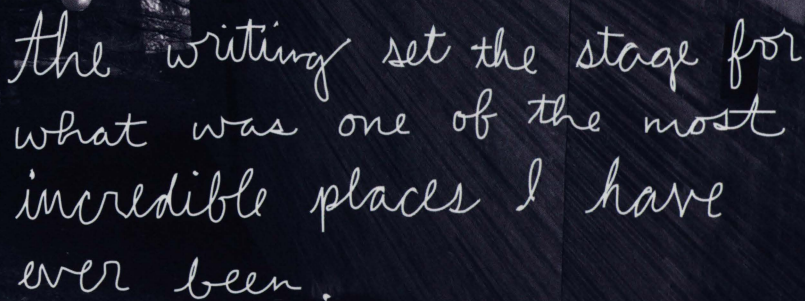 the writing set the stage for
what was one of the most
incredible places I have
ever been.